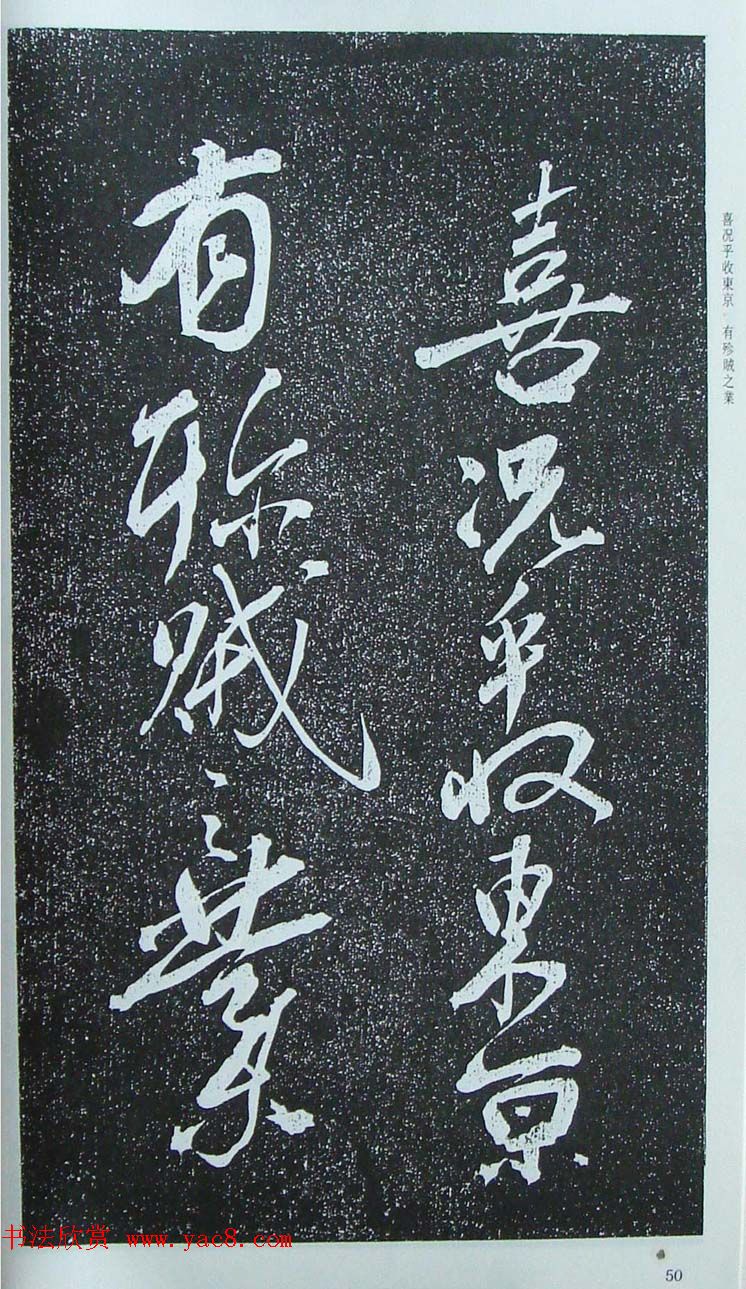 喜况乎收東京
有殄賊之業
喜况乎收東京 有殄賊之業
书法欣赏 www.yac8.com
50